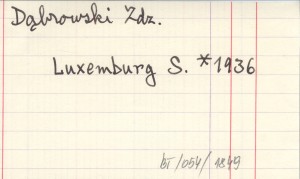 Dąbrowski Zdz.
Luxemburg S. *1936
BT/054/1849